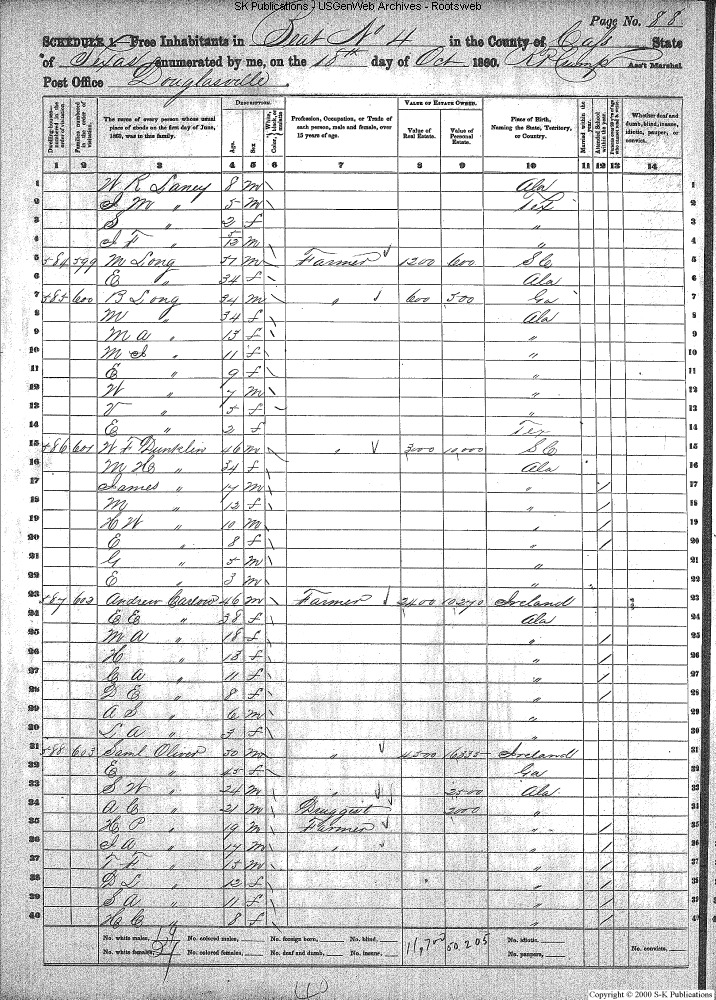 SK Publications - USGenWeb Archives - Rootsweb
Page No. 88
SCHEDULE 1.—Free Inhabitants in Beat No 4 in the County of Cass State
of Texas enumerated by me, on the 18th day of Oct 1860. Ass't Marshal
Post Office Douglasville
Dwelling-houses— numbered in the order of visitation.
Families numbered in the order of visitation.
The name of every person whose usual place of abode on the first day of June, 1860, was in this family.
DESCRIPTION.
Age.
Sex.
Color, White, black, or mulatto.
Profession, Occupation, or Trade of each person, male and female, over 15 years of age.
VALUE OF ESTATE OWNED.
Value of Real Estate.
Value of Personal Estate.
Place of Birth, Naming the State, Territory, or Country.
Married within the year.
Attended School within the year.
Whether deaf and dumb, blind, insane, idiotic, pauper, or convict.
1 2 3 4 5 6 7 8 9 10 11 12 13 14
1 W R Laney 8 m \ Ala 1
2 J M " 5 m \ Tex 2
3 S " 2 f " 3
4 J F " 5/12 m " 4
5 584 599 M Long 57 m \ Farmer 1200 600 S C 5
6 E " 34 f \ Ala 6
7 585 600 B Long 34 m \ " 600 500 Ga 7
8 M " 34 f \ Ala 8
9 M A " 13 f \ " 9
10 M J " 11 f \ " 10
11 E " 9 f \ " 11
12 W " 7 m \ " 12
13 V " 5 f " 13
14 E " 2 f Tex 14
15 586 601 W F Dunklin 46 m \ " 3000 10000 S C 15
16 M H " 34 f \ Ala 16
17 James " 17 m \ " / 17
18 M " 12 f \ " / 18
19 H W " 10 m \ " / 19
20 E " 8 f \ " / 20
21 G " 5 m \ " 21
22 E " 3 m \ " 22
23 587 602 Andrew Carlow 46 m \ Farmer 2400 10270 Ireland 23
24 E E " 38 f \ Ala 24
25 M A " 18 f \ " / 25
26 H " 13 f \ " / 26
27 C A " 11 f \ " / 27
28 D E " 8 f \ " / 28
29 A S " 6 m \ " 29
30 L A " 3 f \ " 30
31 588 603 Saml Oliver 50 m \ " 4500 16335 Ireland 31
32 E " 45 f \ Ga 32
33 S W " 24 m \ " 2500 Ala 33
34 A C " 21 m \ Druggist 2000 " 34
35 H P " 19 m \ Farmer " / 35
36 J A " 17 m \ " " / 36
37 T F " 15 m \ " / 37
38 D L " 12 f \ " / 38
39 S A " 11 f \ " / 39
40 H C " 8 f \ " / 40
No. white males, 19 No. colored males, No. foreign born, No. blind, 11,700 50,205 No. idiotic,
No. white females, No. colored females, No. deaf and dumb, No. insane, No. paupers, No. convicts,
Copyright © 2000 S-K Publications